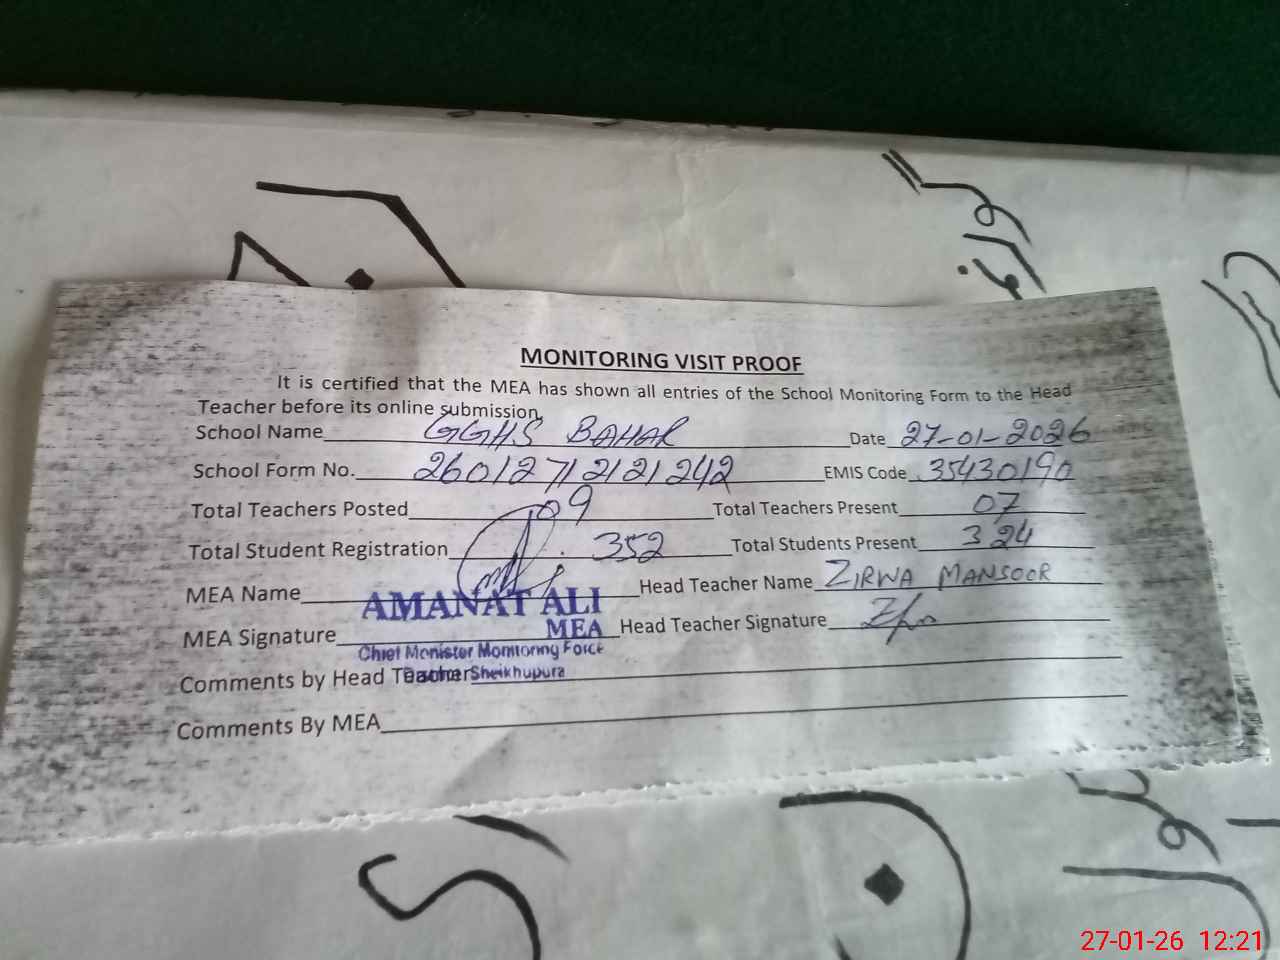 MONITORING VISIT PROOF
It is certified that the MEA has shown all entries of the School Monitoring Form to the Head
Teacher before its online submission.
School Name GGHS BAHAR Date 27-01-2026
School Form No. 26012712121242 EMIS Code 35430190
Total Teachers Posted 09 Total Teachers Present 07
Total Student Registration 352 Total Students Present 324
MEA Name Head Teacher Name ZIRWA MANSOOR
AMANAT ALI
MEA Signature MEA Head Teacher Signature
Chief Menister Monitoring Force
Comments by Head Teacher Sheikhupura
Comments By MEA
27-01-26 12:21